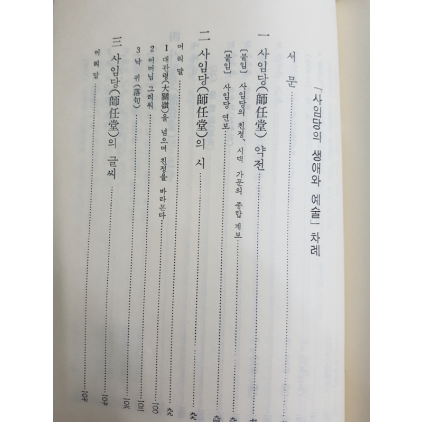 「사임당의 생애와 예술」 차례
서 문
一 사임당(師任堂) 약전
[붙임] 사임당의 친정, 시댁 가문의 종합 계보
[붙임] 사임당 연보
二 사임당(師任堂)의 시
머리말
1 대관령(大關嶺)을 넘으며 친정을 바라본다
2 어머님 그리워
3 낙 귀(落句)
三 사임당(師任堂)의 글씨
머릿말